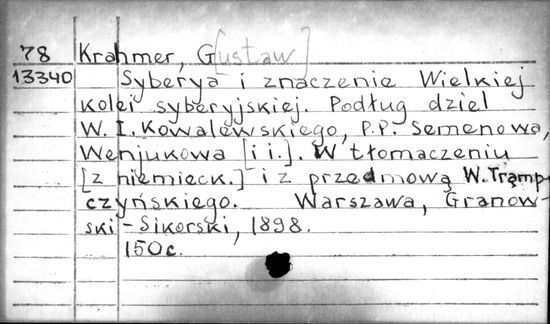 78 Krahmer, G[ustaw]
13340 Syberya i znaczenie Wielkiej
kolei syberyjskiej. Podług dzieł
W. I. Kowalewskiego, P.P. Semenowa,
Wenjukowa [i i.]. W tłomaczeniu
[z niemieck.] i z przedmową W. Trąmp-
czyńskiego. Warszawa, Granow-
ski-Sikorski, 1898.
150c.